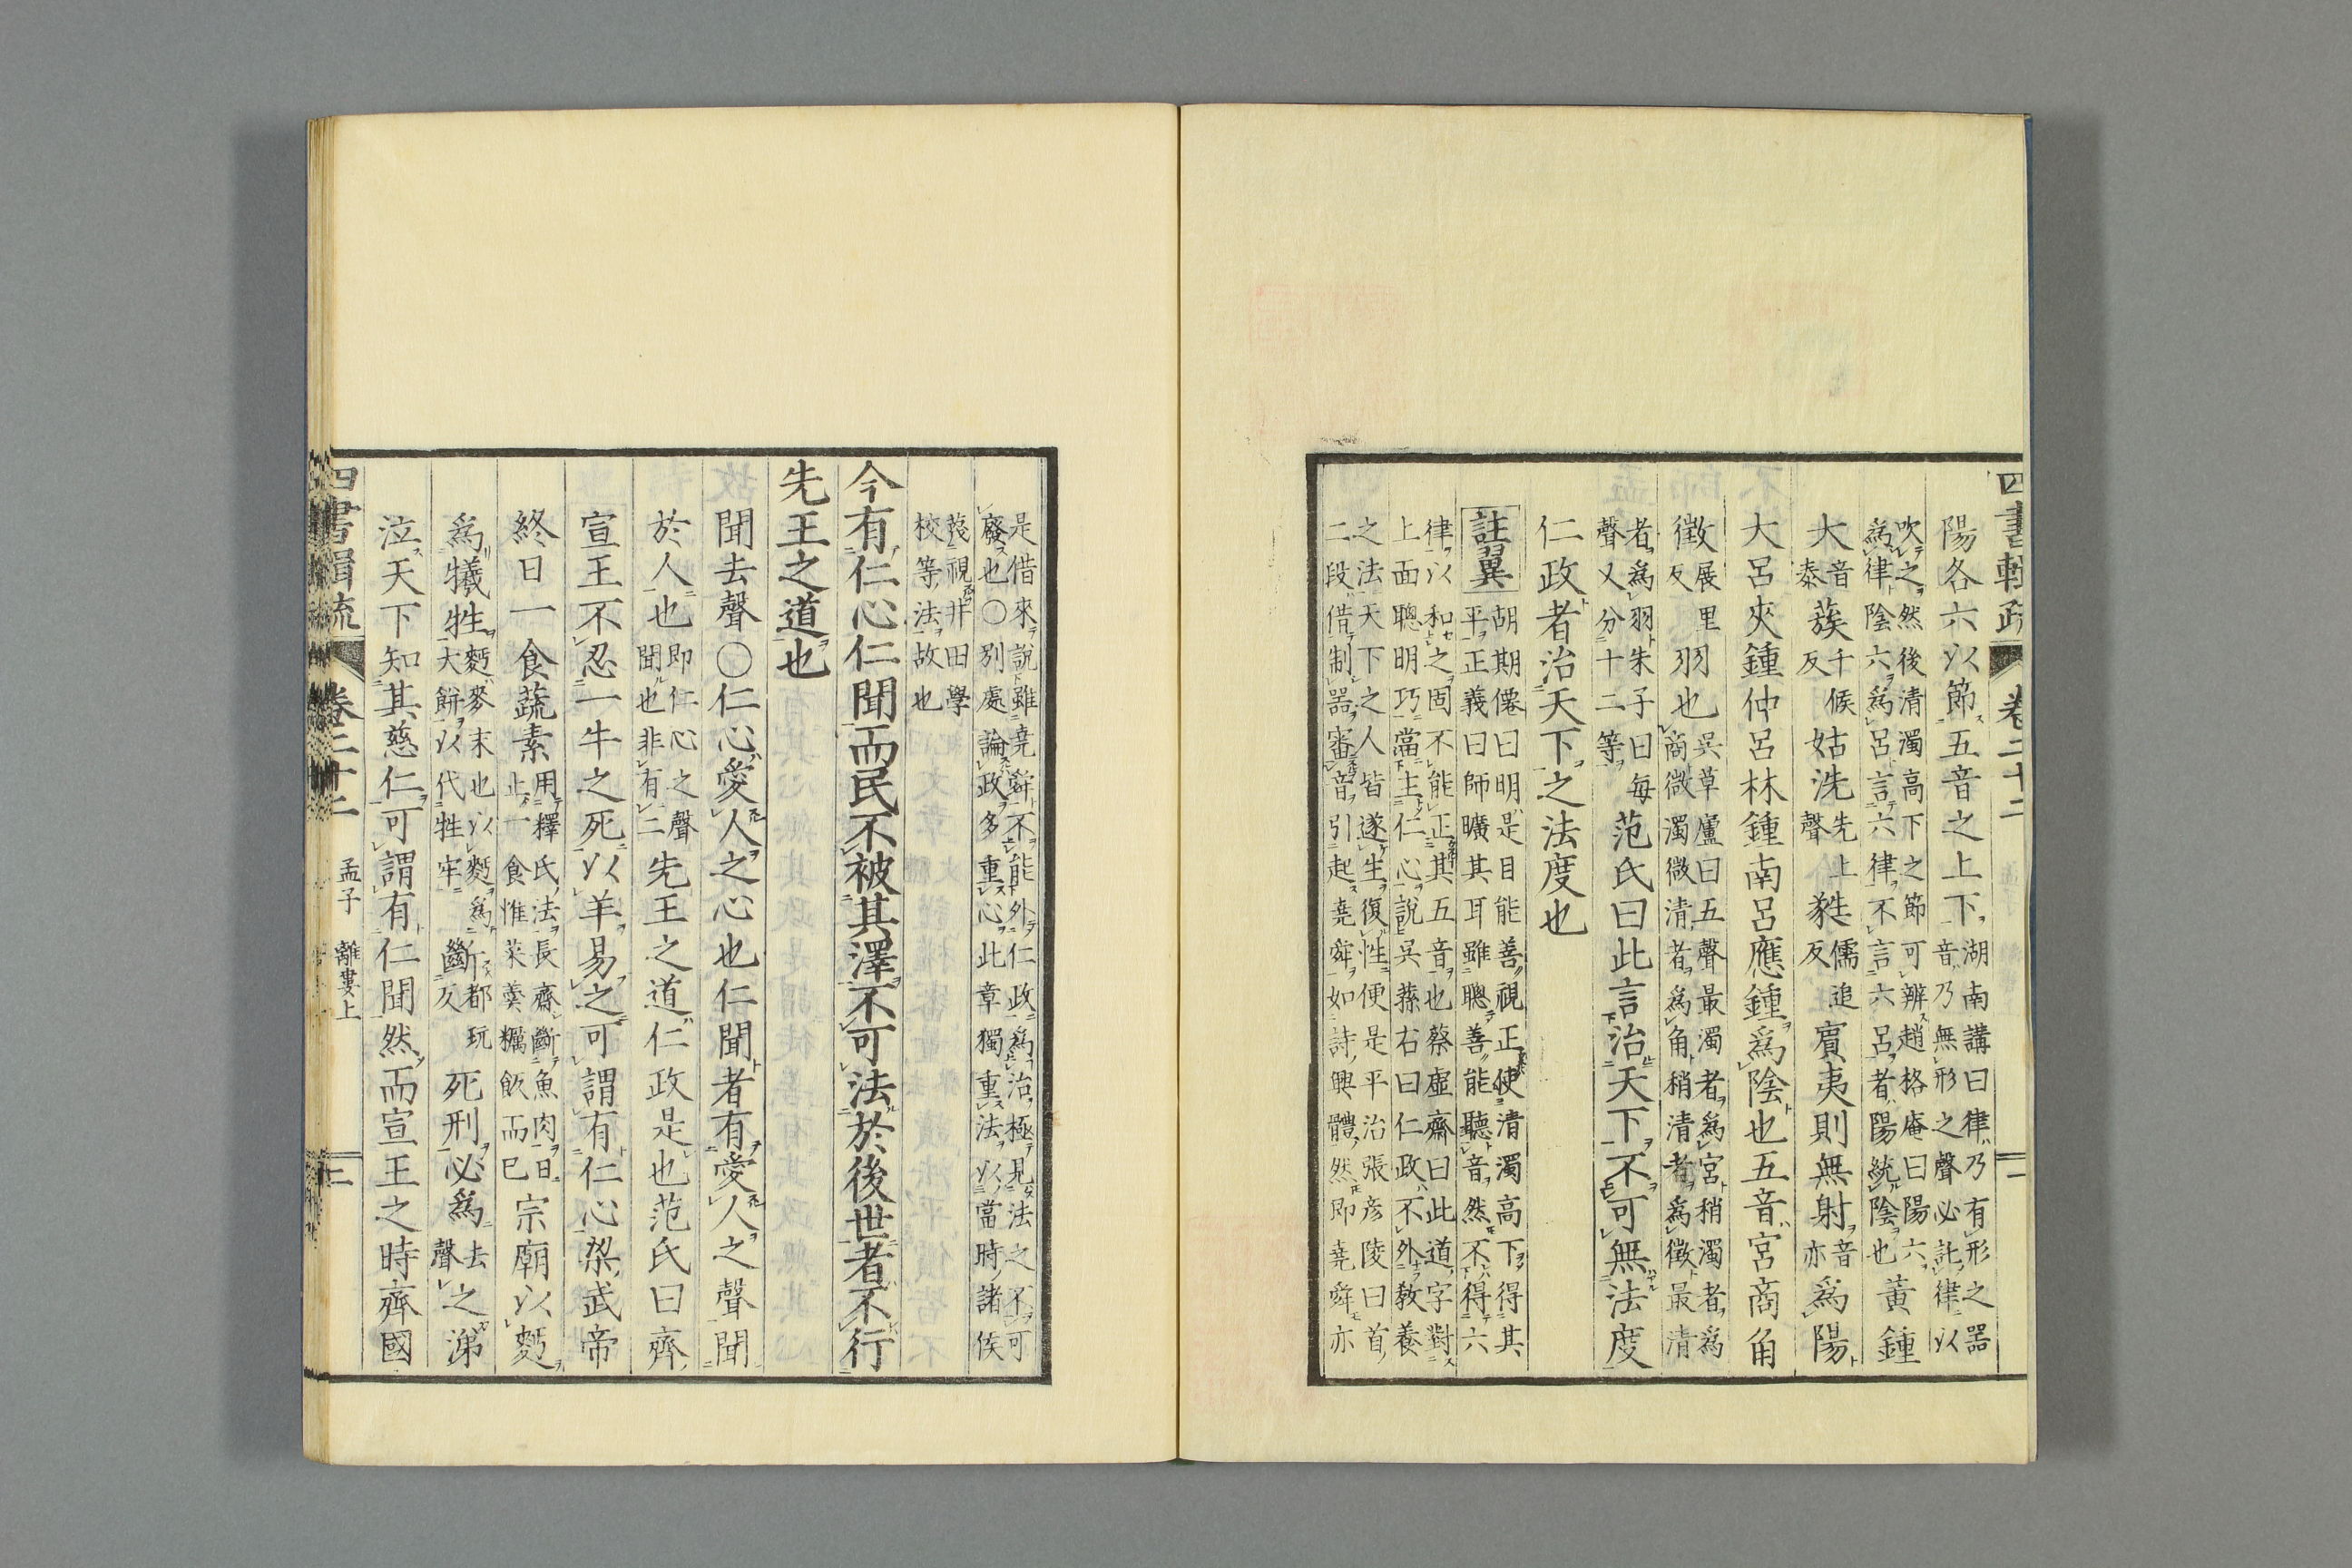 四書輯疏 卷二十二 二
陽各六以節五音之上下湖南講曰律乃有形之器音乃無形之聲必託律以
吹之然後清濁高下之節可辨趙格庵曰陽六爲律陰六爲呂言六律不言六呂者陽統陰也黃鍾
大音泰蔟千候反姑洗先上聲蕤儒追反賓夷則無射音亦爲陽
大呂夾鍾仲呂林鍾南呂應鍾爲陰也五音宮商角
徵展里反羽也吳草廬曰五聲最濁者爲宮稍濁者爲商微濁微清者爲角稍清者爲徵最清
者爲羽朱子曰每聲又分十二等范氏曰此言治天下不可無法度
仁政者治天下之法度也
註翼胡期僊曰明是目能善視正使清濁高下得其平正義曰師曠其耳雖聰善能聽音然不得六
律以和之固不能正其五音也蔡虛齋曰此道字對上面聰明巧當主仁心說吳蓀右曰仁政不外敎養
之法天下之人皆遂生復性便是平治張彥陵曰首二段借制器審音引起堯舜如詩興體然卽堯舜亦
是借來說雖堯舜不能外仁政爲治極見法之不可廢也○別處論政多重心此章獨重法以當時諸侯
蔑視井田學校等法故也
今有仁心仁聞而民不被其澤不可法於後世者不行
先王之道也
聞去聲○仁心愛人之心也仁聞者有愛人之聲聞
於人也卽仁心之聲聞也非有二先王之道仁政是也范氏曰齊
宣王不忍一牛之死以羊易之可謂有仁心梁武帝
終日一食蔬素用釋氏法長齋斷魚肉日止一食惟菜羹糲飯而已宗廟以麪
爲犧牲麪麥末也以麪爲大餠以代牲牢斷都玩反死刑必爲去聲之涕
泣天下知其慈仁可謂有仁聞然而宣王之時齊國
四書輯疏 卷二十二 孟子 離婁上 三